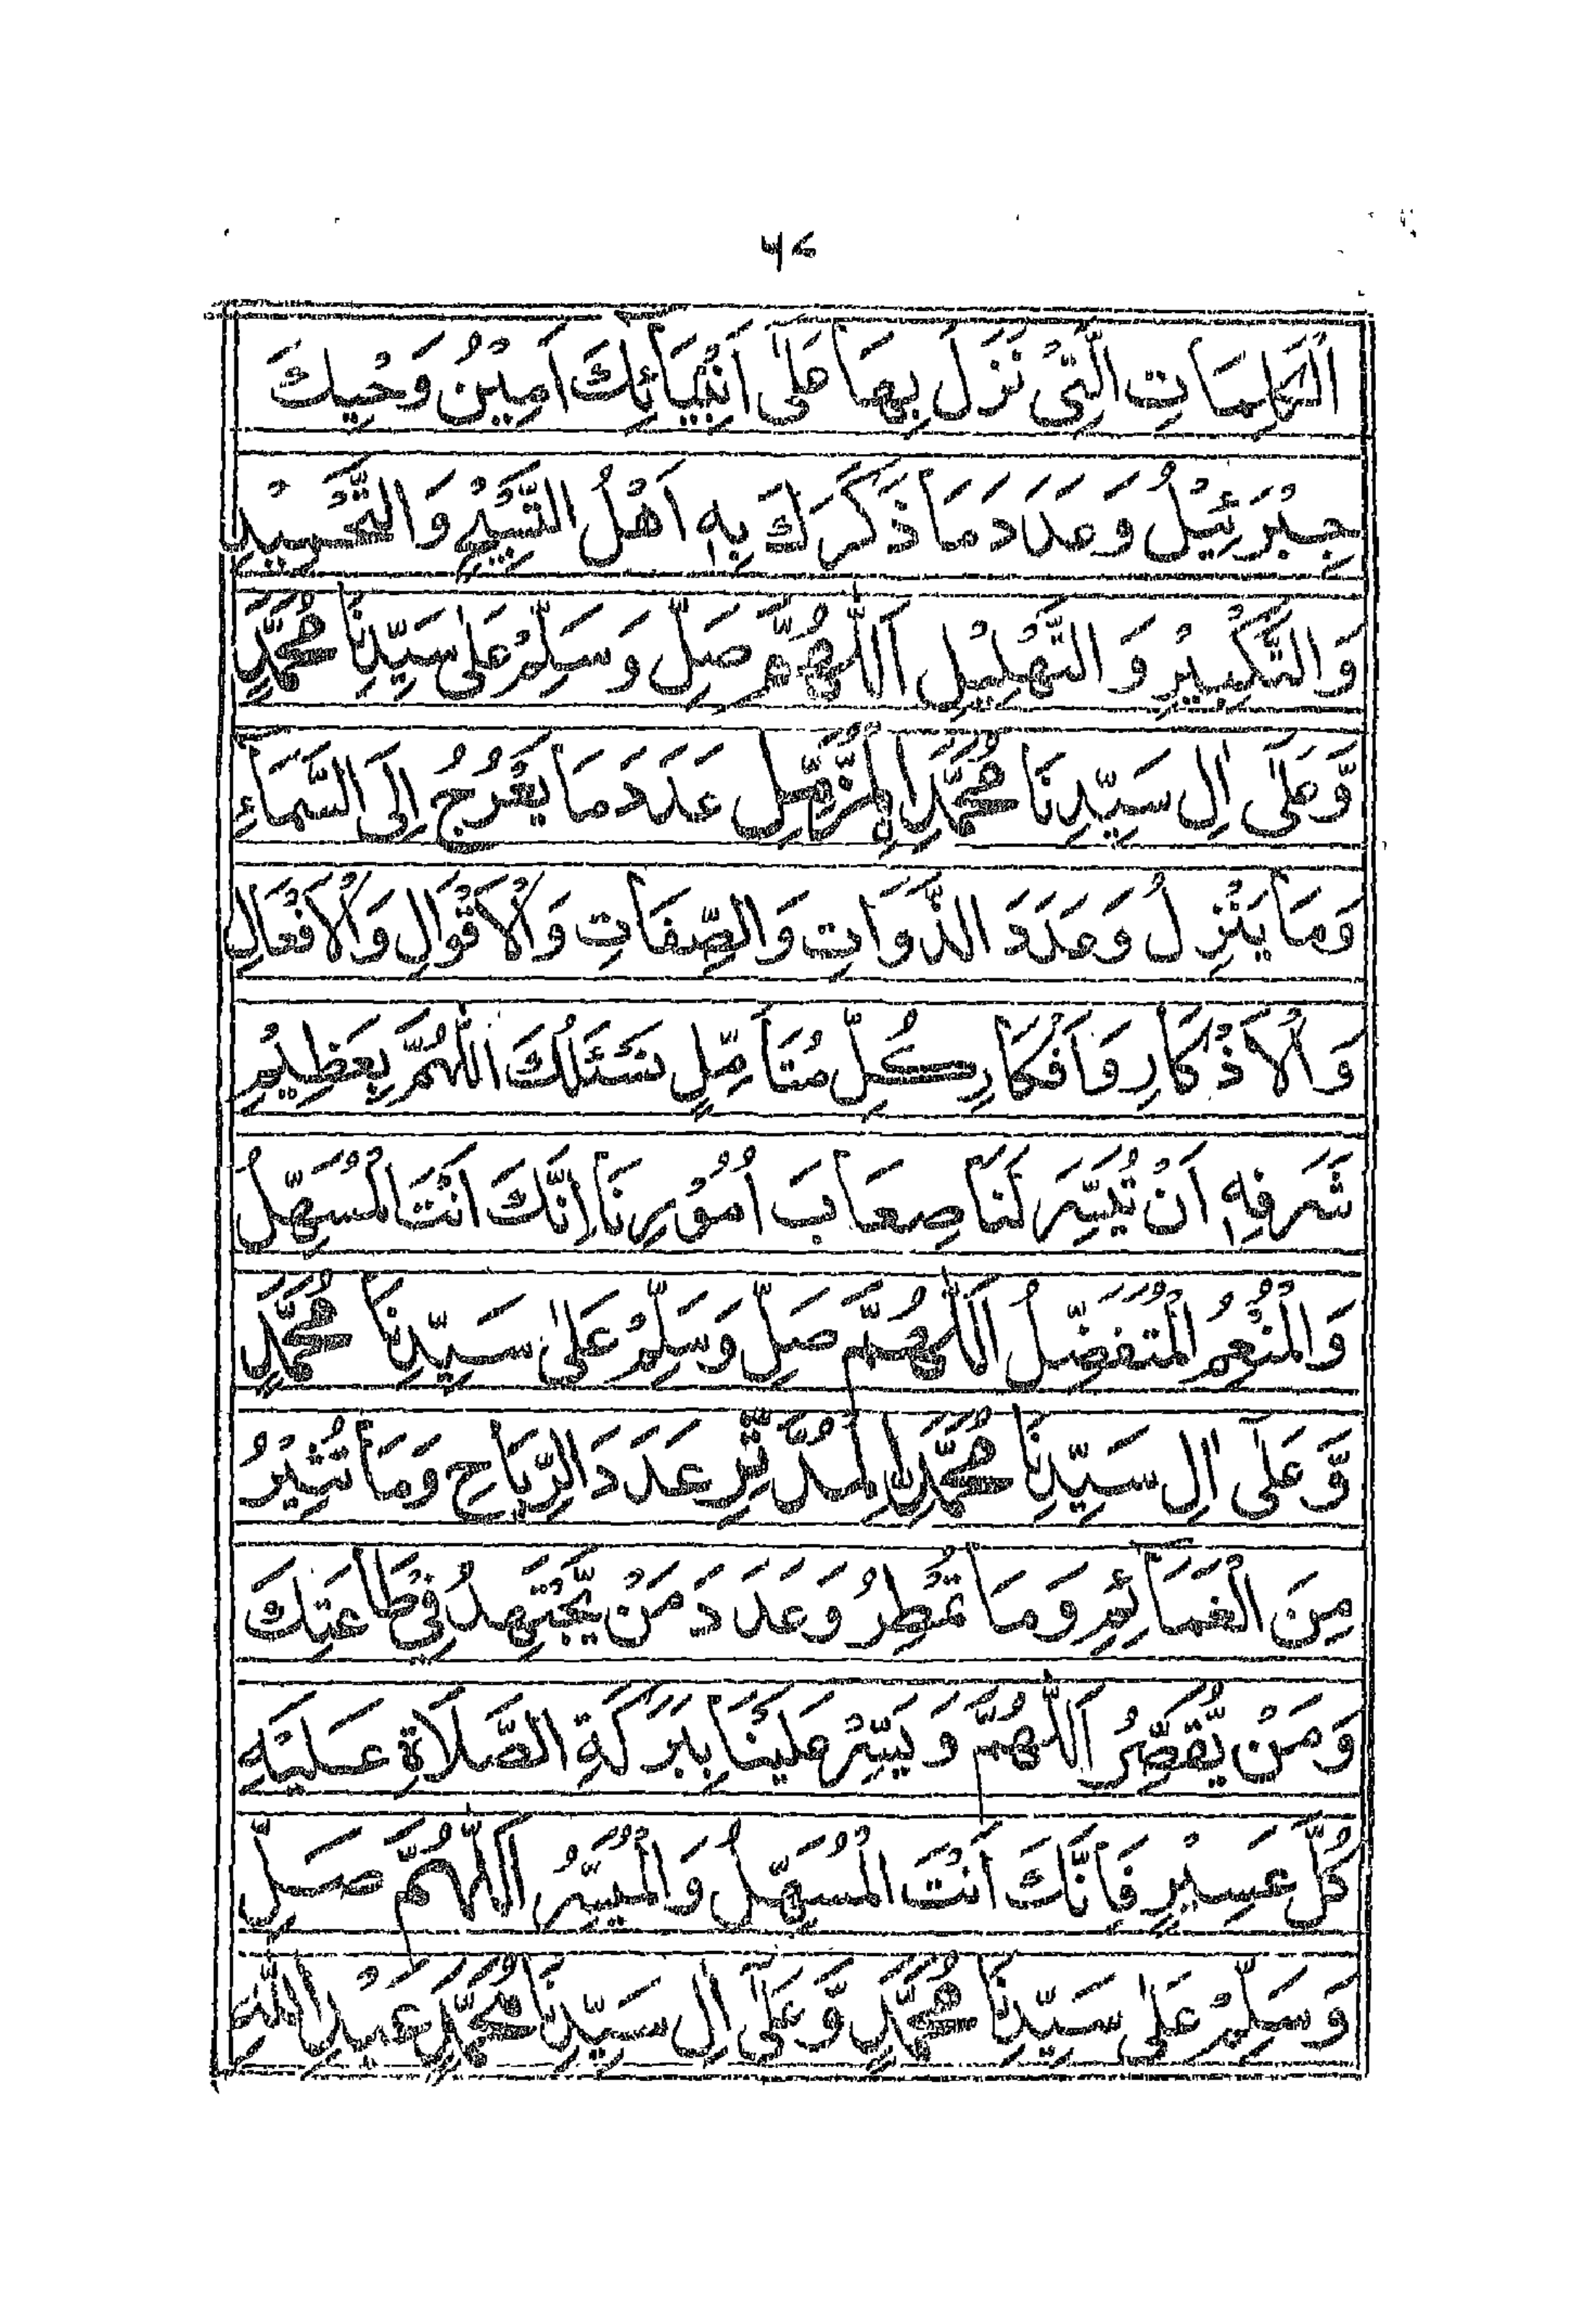 ۴۷
الْكَلِمَاتِ الَّتِيْ نَزَلَ بِهَا عَلٰٓى اَنْبِيَآئِكَ اَمِيْنُ وَحْيِكَ
جِبْرَئِيْلُ وَعَدَدَ مَا ذَكَرَكَ بِهٖ اَهْلُ التَّسْبِيْحِ وَالتَّحْمِيْدِ
وَالتَّكْبِيْرِ وَالتَّهْلِيْلِ اَللّٰهُمَّ صَلِّ وَسَلِّمْ عَلٰى سَيِّدِنَا مُحَمَّدٍ
وَّعَلٰٓى اٰلِ سَيِّدِنَا مُحَمَّدِ ۨالْمُزَّمِّلِ عَدَدَ مَا يَعْرُجُ اِلَى السَّمَآءِ
وَمَا يَنْزِلُ وَعَدَدَ الذَّوَاتِ وَالصِّفَاتِ وَالْاَقْوَالِ وَالْاَفْعَالِ
وَالْاَذْكَارِ وَاَفْكَارِ كُلِّ مُتَاَمِّلٍ نَسْئَلُكَ اللّٰهُمَّ بِعَظِيْمِ
شَرَفِهٖ اَنْ تُيَسِّرَ لَنَا صِعَابَ اُمُوْرِنَا اِنَّكَ اَنْتَ الْمُسَهِّلُ
وَالْمُنْعِمُ الْمُتَفَضِّلُ اَللّٰهُمَّ صَلِّ وَسَلِّمْ عَلٰى سَيِّدِنَا مُحَمَّدٍ
وَّعَلٰٓى اٰلِ سَيِّدِنَا مُحَمَّدِ ۨالْمُدَّثِّرِ عَدَدَ الرِّيَاحِ وَمَا تُثِيْرُ
مِنَ الْغَمَآئِمِ وَمَا تُمْطِرُ وَعَدَدَ مَنْ يَّجْتَهِدُ فِيْ طَاعَتِكَ
وَمَنْ يُّقَصِّرُ اَللّٰهُمَّ وَيَسِّرْ عَلَيْنَا بِبَرَكَةِ الصَّلَاةِ عَلَيْهِ
كُلَّ عَسِيْرٍ فَاِنَّكَ اَنْتَ الْمُسَهِّلُ وَالْمُيَسِّرُ اَللّٰهُمَّ صَلِّ
وَسَلِّمْ عَلٰى سَيِّدِنَا مُحَمَّدٍ وَّعَلٰٓى اٰلِ سَيِّدِنَا مُحَمَّدٍ عَبْدِ اللّٰهِ